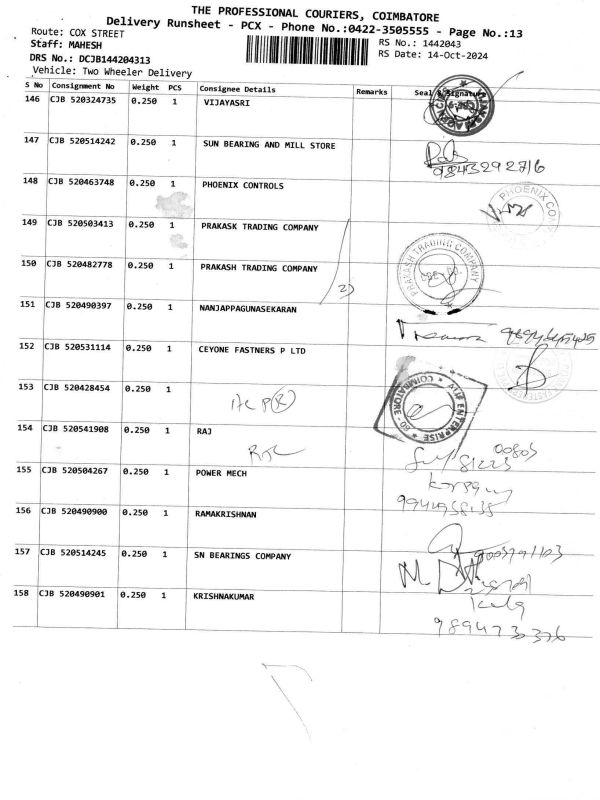 THE PROFESSIONAL COURIERS, COIMBATORE
Delivery Runsheet - PCX - Phone No.:0422-3505555 - Page No.:13
Route: COX STREET
RS No.: 1442043
Staff: MAHESH
RS Date: 14-Oct-2024
DRS No.: DCJB144204313
Vehicle: Two Wheeler Delivery
S No Consignment No Weight PCS Consignee Details Remarks Seal & Signature
146 CJB 520324735 0.250 1 VIJAYASRI
147 CJB 520514242 0.250 1 SUN BEARING AND MILL STORE
148 CJB 520463748 0.250 1 PHOENIX CONTROLS
PHOENIX
149 CJB 520503413 0.250 1 PRAKASK TRADING COMPANY
PRAKASH TRADING COMPANY
150 CJB 520482778 0.250 1 PRAKASH TRADING COMPANY
2)
151 CJB 520490397 0.250 1 NANJAPPAGUNASEKARAN
152 CJB 520531114 0.250 1 CEYONE FASTNERS P LTD
153 CJB 520428454 0.250 1
ENTERPRISE COIMBATORE
154 CJB 520541908 0.250 1 RAJ
155 CJB 520504267 0.250 1 POWER MECH
156 CJB 520490900 0.250 1 RAMAKRISHNAN
157 CJB 520514245 0.250 1 SN BEARINGS COMPANY
158 CJB 520490901 0.250 1 KRISHNAKUMAR